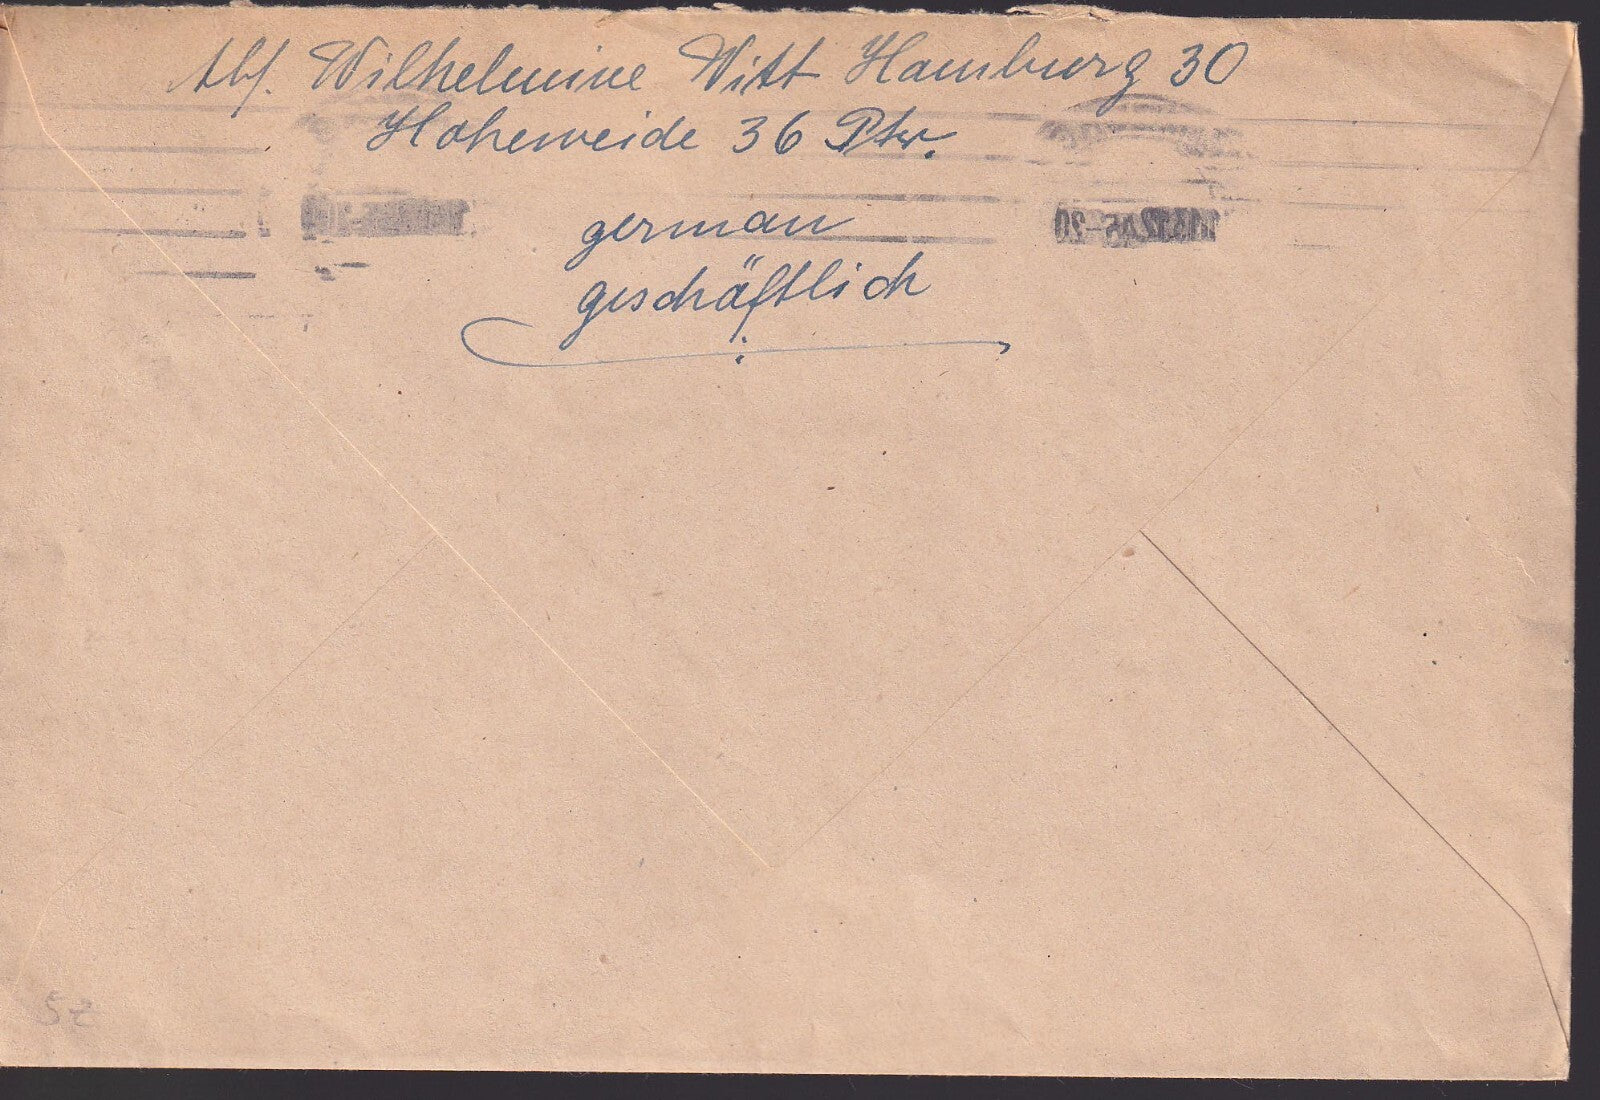 Abs. Wilhelmine Witt Hamburg 30
Hoheweide 36 Ptr.
german
geschäftlich
13.12.45-20
5z